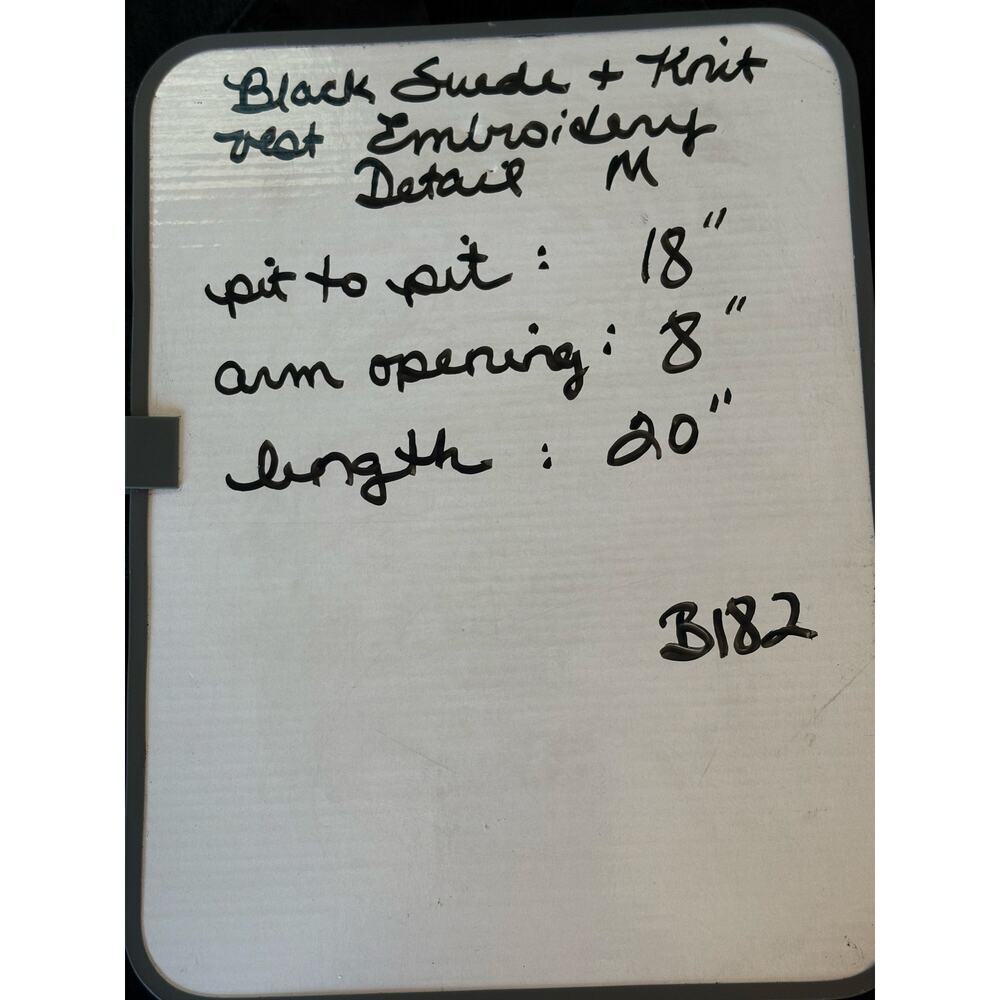 Black Suede + Knit
vest Embroidery
Detail M
pit to pit : 18"
arm opening : 8"
length : 20"
B182